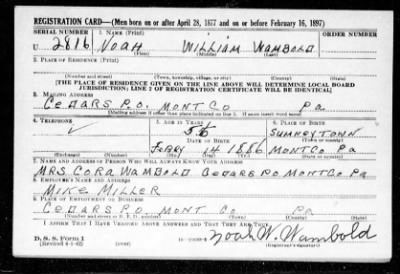 REGISTRATION CARD—(Men born on or after April 28, 1877 and on or before February 16, 1897)
SERIAL NUMBER 1. NAME (Print) ORDER NUMBER
U 2816 NOAH WILLIAM WAMBOLD
(First) (Middle) (Last)
2. PLACE OF RESIDENCE (Print)
(Number and street) (Town, township, village, or city) (County) (State)
[THE PLACE OF RESIDENCE GIVEN ON THE LINE ABOVE WILL DETERMINE LOCAL BOARD
JURISDICTION; LINE 2 OF REGISTRATION CERTIFICATE WILL BE IDENTICAL]
3. MAILING ADDRESS
CEDARS P.O. MONT CO Pa
(Mailing address if other than place indicated on line 2. If same insert word same)
4. TELEPHONE 5. AGE IN YEARS 6. PLACE OF BIRTH
56 SUMNEYTOWN
DATE OF BIRTH (Town or county)
FEBRY 14 1886 MONTCO Pa
(Exchange) (Number) (Mo.) (Day) (Yr.) (State or country)
7. NAME AND ADDRESS OF PERSON WHO WILL ALWAYS KNOW YOUR ADDRESS
MRS. CORA WAMBOLD CEDARS PO MONTCO Pa
8. EMPLOYER'S NAME AND ADDRESS
MIKE MILLER
9. PLACE OF EMPLOYMENT OR BUSINESS
CEDARS P.O. MONT CO Pa
(Number and street or R. F. D. number) (Town) (County) (State)
I AFFIRM THAT I HAVE VERIFIED ABOVE ANSWERS AND THAT THEY ARE TRUE.
D. S. S. Form 1
(Revised 4-1-42) Noah W. Wambold
(Registrant's signature)